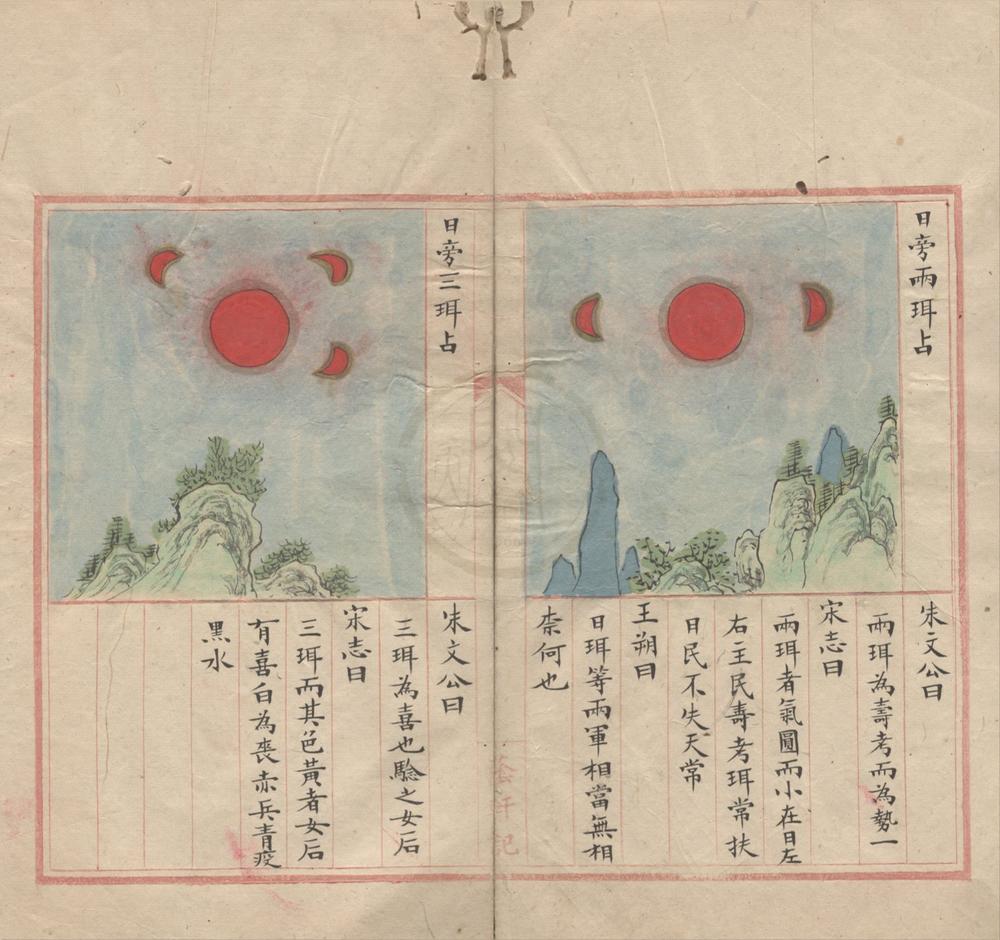 日旁兩珥占
朱文公曰
兩珥為壽考而為勢一
宋志曰
兩珥者氣圓而小在日左
右主民壽考珥常扶
日民不失天常
王朔曰
日珥等兩軍相當無相
柰何也
日旁三珥占
朱文公曰
三珥為喜也驗之女后
宋志曰
三珥而其色黃者女后
有喜白為喪赤兵青疫
黑水